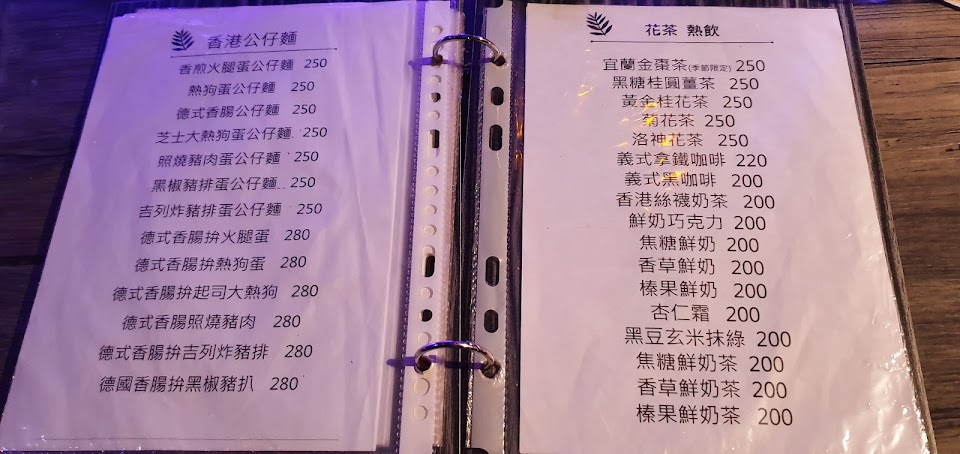 香港公仔麵
香煎火腿蛋公仔麵 250
熱狗蛋公仔麵 250
德式香腸公仔麵 250
芝士大熱狗蛋公仔麵. 250
照燒豬肉蛋公仔麵 250
黑椒豬排蛋公仔麵.. 250
吉列炸豬排蛋公仔麵 250
德式香腸拚火腿蛋 280
德式香腸拚熱狗蛋 280
德式香腸拚起司大熱狗 280
德式香腸照燒豬肉 280
德式香腸拚吉列炸豬排 280
德國香腸拚黑椒豬扒 280
花茶 熱飲
宜蘭金棗茶(季節限定) 250
黑糖桂圓薑茶 250
黃金桂花茶 250
菊花茶 250
洛神花茶 250
義式拿鐵咖啡 220
義式黑咖啡 200
香港絲襪奶茶 200
鮮奶巧克力 200
焦糖鮮奶 200
香草鮮奶 200
榛果鮮奶 200
杏仁霜 200
黑豆玄米抹綠 200
焦糖鮮奶茶 200
香草鮮奶茶 200
榛果鮮奶茶 200